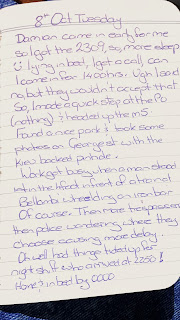 8th Oct Tuesday
Damian came in early for me
so I got the 2309, so, more sleep
U lying in bed, I get a call, can
I come in for 1400hrs. Ugh I said
no, but they wouldn't accept that
So, I made a quick stop at the PO
(nothing) & headed up the M5.
Found a nice park & took some
photos on George st with the
Kiev backed pinhole.
Work got busy when a man stood
in the 4 foot infront of a train at
Bellambi wheeling an iron bar
Of course. Then more trespassers
then police wandering where they
choose causing more delay.
Oh well had things tidied up for
night shift who arrived at 2250!
Home & in bed by 0000